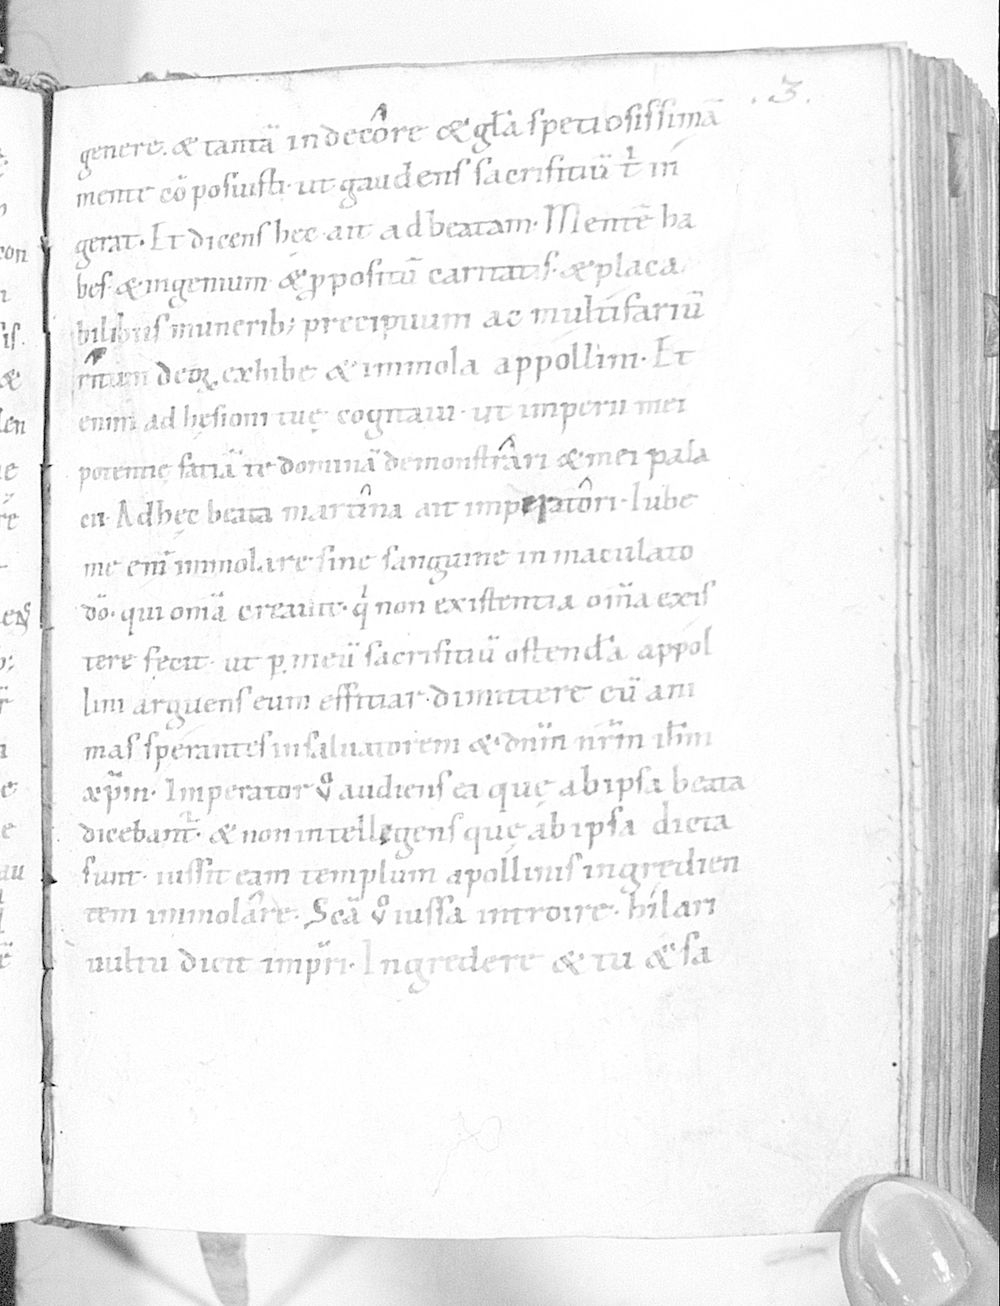 .3.
genere. & tantā in decôre & gl̄a spetiosissimā
mente cōposuisti· ut gaudens sacrifitiū t̉ in
gerat· Et dicens hęc ait ad beatam· Mentē ha
bes· & ingenium· & ꝓpositū caritatis· & placa
bilibus munerib; precipuum ac multifariū
ritum deoꝝ exhibe & immola appollini· Et
enim adhesioni tuę cognaui· ut imperii mei
potentię fatiā te dominā demonstrâri & mei pala
cii· Ad hęc beata martîna ait imperatôri· Iube
me eni̅ immolare sine sanguine inmaculato
dō· qui om̄ā creauit· q̇ non existentia om̄ia exis
tere fecit· ut ꝑ meū sacrifitiū ostend̄a appol
lini arguens eum effitiar· dimittere eū ani
mas sperantes in saluatorem & dn̄m nr̄m ih̄m
xp̄m· Imperator v̊ audiens ea quę ab ipsa beata
dicebant̉· & non intellegens quę ab ipsa dicta
sunt· iussit eam templum apollinis ingredien
tem immolâre· Scā v̊ iussa introire· hilari
uultu dicit imp̄ri· Ingredere & tu & sa